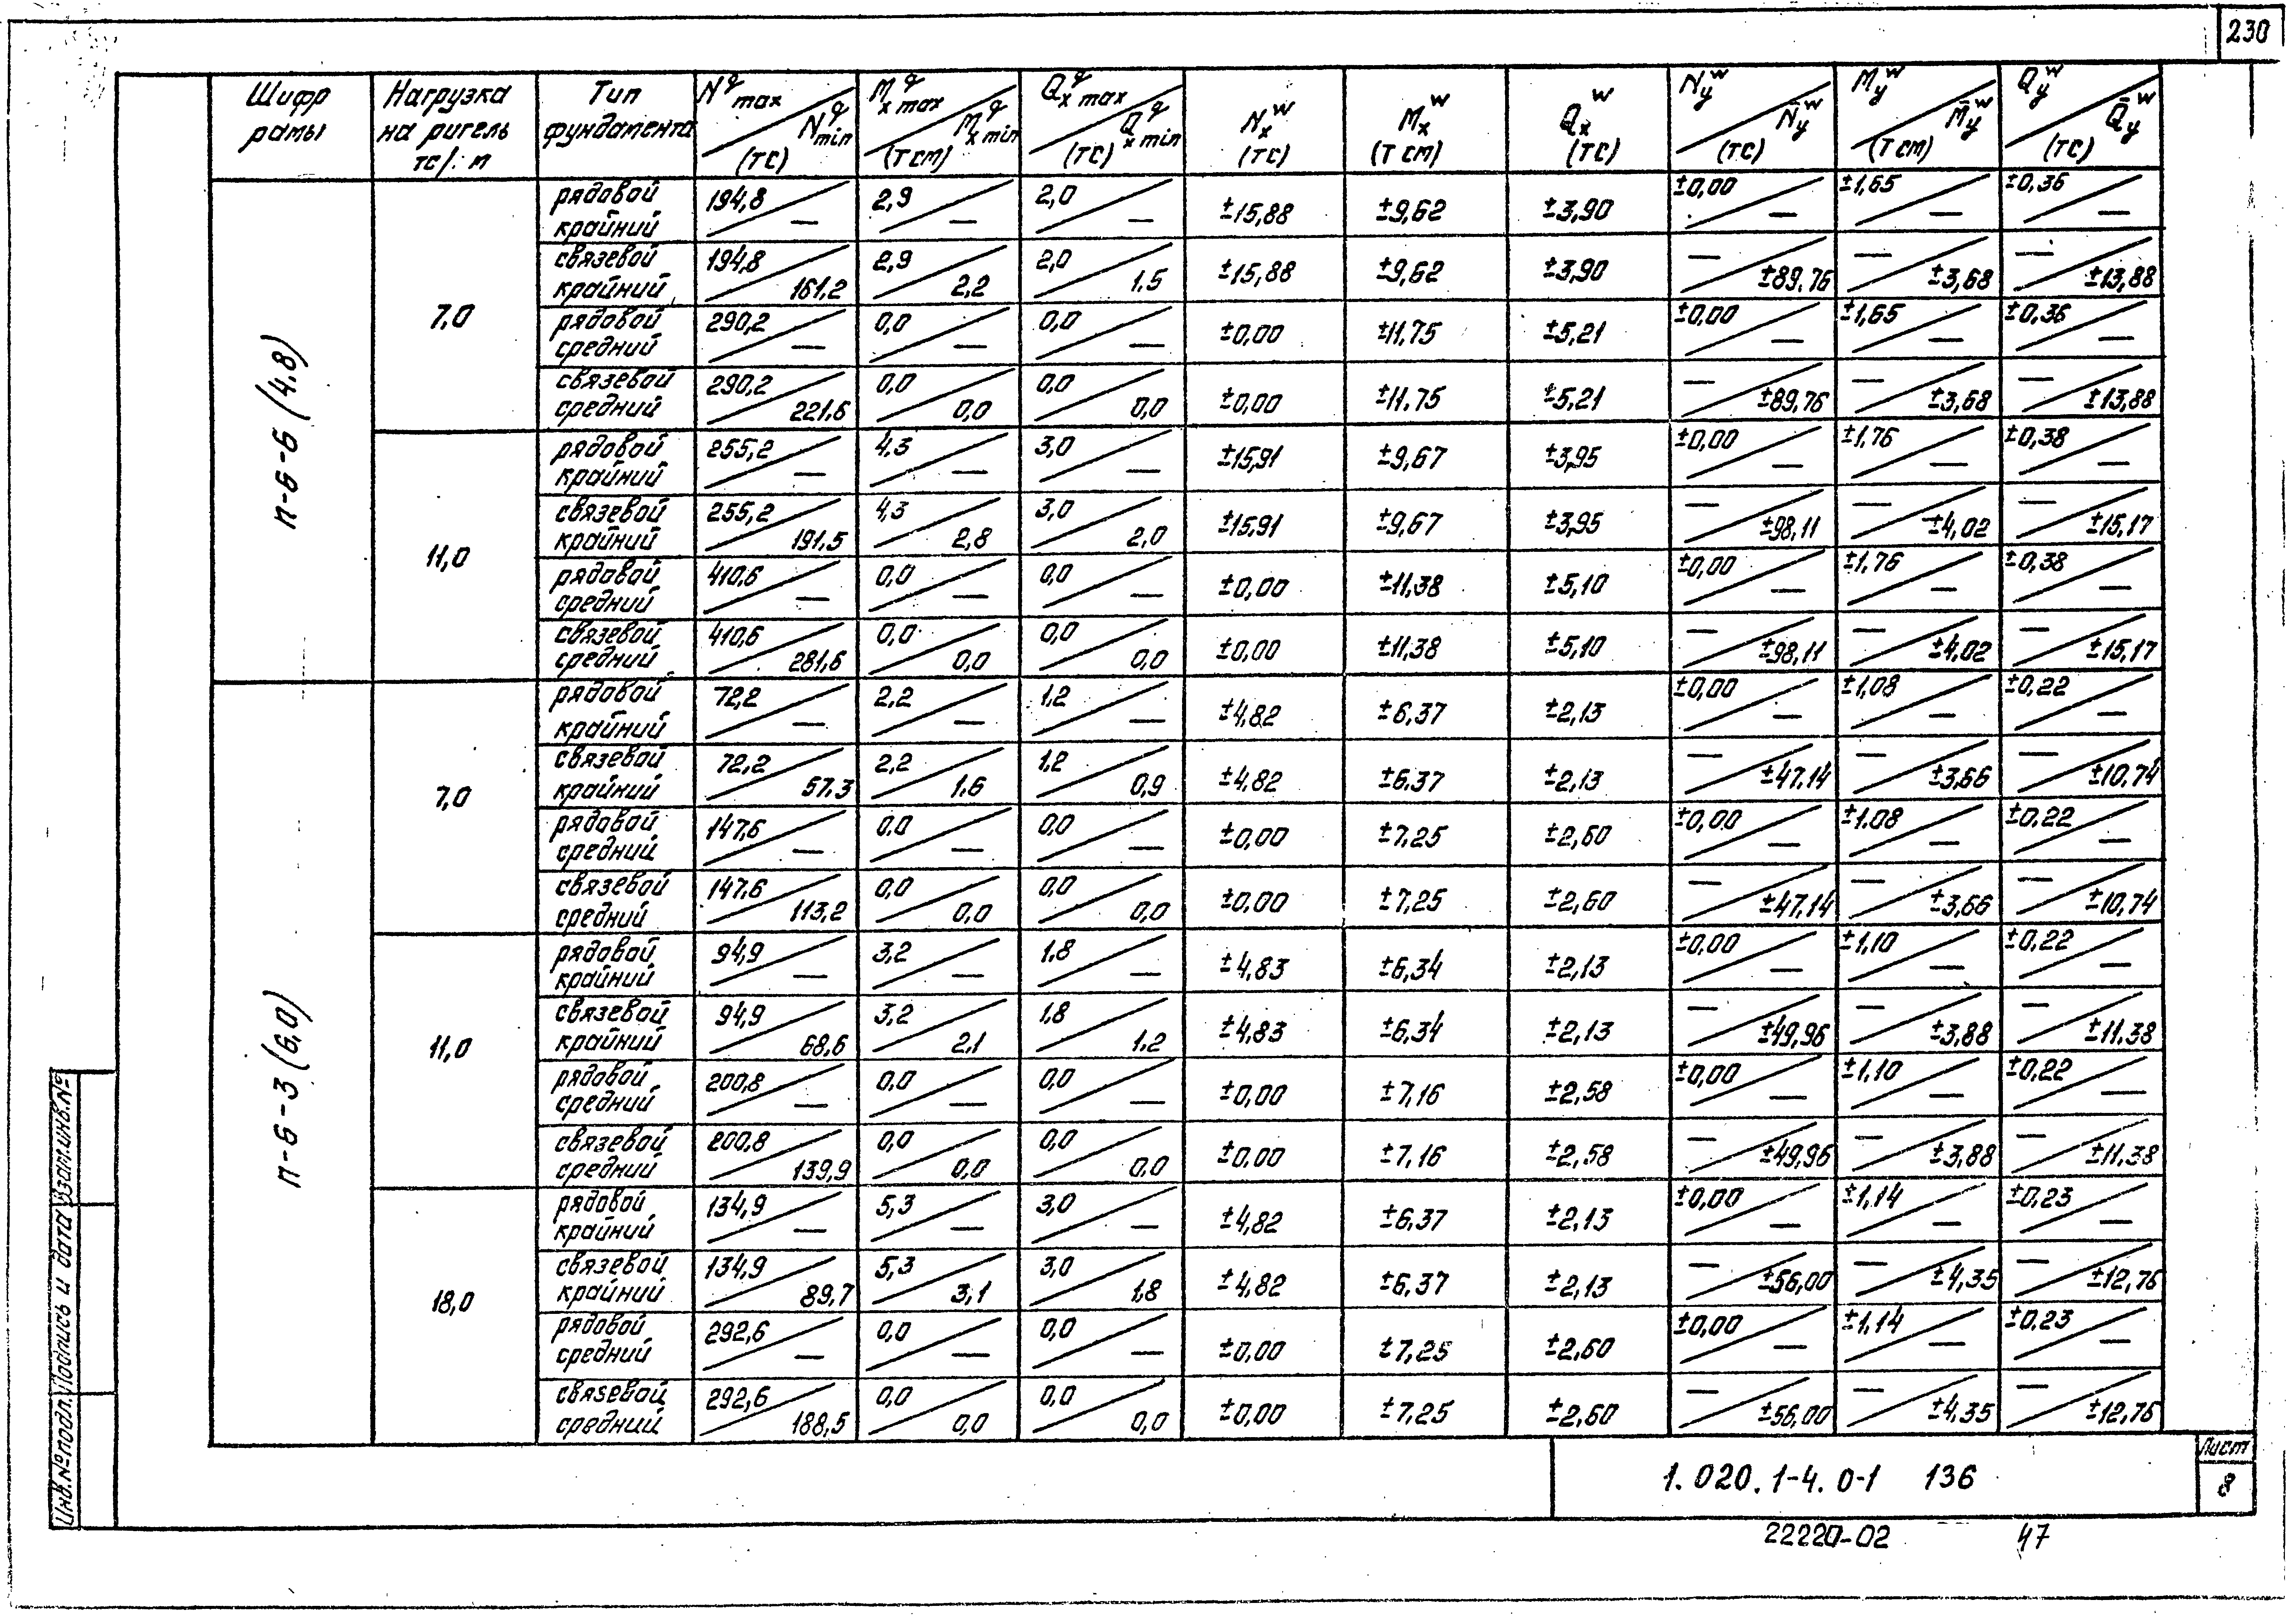 230
Шифр рамы | Нагрузка на ригель тс/п.м | Тип фундамента | N^q max / N^q min (тс) | M^q x max / M^q x min (тсм) | Q^q x max / Q^q x min (тс) | N^w x (тс) | M^w x (тсм) | Q^w x (тс) | N^w y / N̄^w y (тс) | M^w y / M̄^w y (тсм) | Q^w y / Q̄^w y (тс)
п-6-6 (4.8)
7,0
рядовой крайний | 194,8 / — | 2,9 / — | 2,0 / — | ±15,88 | ±9,62 | ±3,90 | ±0,00 / — | ±1,65 / — | ±0,36 / —
связевой крайний | 194,8 / 161,2 | 2,9 / 2,2 | 2,0 / 1,5 | ±15,88 | ±9,62 | ±3,90 | — / ±89,76 | — / ±3,68 | — / ±13,88
рядовой средний | 290,2 / — | 0,0 / — | 0,0 / — | ±0,00 | ±11,75 | ±5,21 | ±0,00 / — | ±1,65 / — | ±0,36 / —
связевой средний | 290,2 / 221,6 | 0,0 / 0,0 | 0,0 / 0,0 | ±0,00 | ±11,75 | ±5,21 | — / ±89,76 | — / ±3,68 | — / ±13,88
11,0
рядовой крайний | 255,2 / — | 4,3 / — | 3,0 / — | ±15,91 | ±9,67 | ±3,95 | ±0,00 / — | ±1,76 / — | ±0,38 / —
связевой крайний | 255,2 / 191,5 | 4,3 / 2,8 | 3,0 / 2,0 | ±15,91 | ±9,67 | ±3,95 | — / ±98,11 | — / ±4,02 | — / ±15,17
рядовой средний | 410,6 / — | 0,0 / — | 0,0 / — | ±0,00 | ±11,38 | ±5,10 | ±0,00 / — | ±1,76 / — | ±0,38 / —
связевой средний | 410,6 / 281,6 | 0,0 / 0,0 | 0,0 / 0,0 | ±0,00 | ±11,38 | ±5,10 | — / ±98,11 | — / ±4,02 | — / ±15,17
п-6-3 (6,0)
7,0
рядовой крайний | 72,2 / — | 2,2 / — | 1,2 / — | ±4,82 | ±6,37 | ±2,13 | ±0,00 / — | ±1,08 / — | ±0,22 / —
связевой крайний | 72,2 / 57,3 | 2,2 / 1,6 | 1,2 / 0,9 | ±4,82 | ±6,37 | ±2,13 | — / ±47,14 | — / ±3,66 | — / ±10,74
рядовой средний | 147,6 / — | 0,0 / — | 0,0 / — | ±0,00 | ±7,25 | ±2,60 | ±0,00 / — | ±1,08 / — | ±0,22 / —
связевой средний | 147,6 / 113,2 | 0,0 / 0,0 | 0,0 / 0,0 | ±0,00 | ±7,25 | ±2,60 | — / ±47,14 | — / ±3,66 | — / ±10,74
11,0
рядовой крайний | 94,9 / — | 3,2 / — | 1,8 / — | ±4,83 | ±6,34 | ±2,13 | ±0,00 / — | ±1,10 / — | ±0,22 / —
связевой крайний | 94,9 / 68,6 | 3,2 / 2,1 | 1,8 / 1,2 | ±4,83 | ±6,34 | ±2,13 | — / ±49,96 | — / ±3,88 | — / ±11,38
рядовой средний | 200,8 / — | 0,0 / — | 0,0 / — | ±0,00 | ±7,16 | ±2,58 | ±0,00 / — | ±1,10 / — | ±0,22 / —
связевой средний | 200,8 / 139,9 | 0,0 / 0,0 | 0,0 / 0,0 | ±0,00 | ±7,16 | ±2,58 | — / ±49,96 | — / ±3,88 | — / ±11,38
18,0
рядовой крайний | 134,9 / — | 5,3 / — | 3,0 / — | ±4,82 | ±6,37 | ±2,13 | ±0,00 / — | ±1,14 / — | ±0,23 / —
связевой крайний | 134,9 / 89,7 | 5,3 / 3,1 | 3,0 / 1,8 | ±4,82 | ±6,37 | ±2,13 | — / ±56,00 | — / ±4,35 | — / ±12,76
рядовой средний | 292,6 / — | 0,0 / — | 0,0 / — | ±0,00 | ±7,25 | ±2,60 | ±0,00 / — | ±1,14 / — | ±0,23 / —
связевой средний | 292,6 / 188,5 | 0,0 / 0,0 | 0,0 / 0,0 | ±0,00 | ±7,25 | ±2,60 | — / ±56,00 | — / ±4,35 | — / ±12,76
Инв.№ подл. Подпись и дата Взам.инв.№
1.020.1-4. 0-1 136
Лист
8
22220-02 47